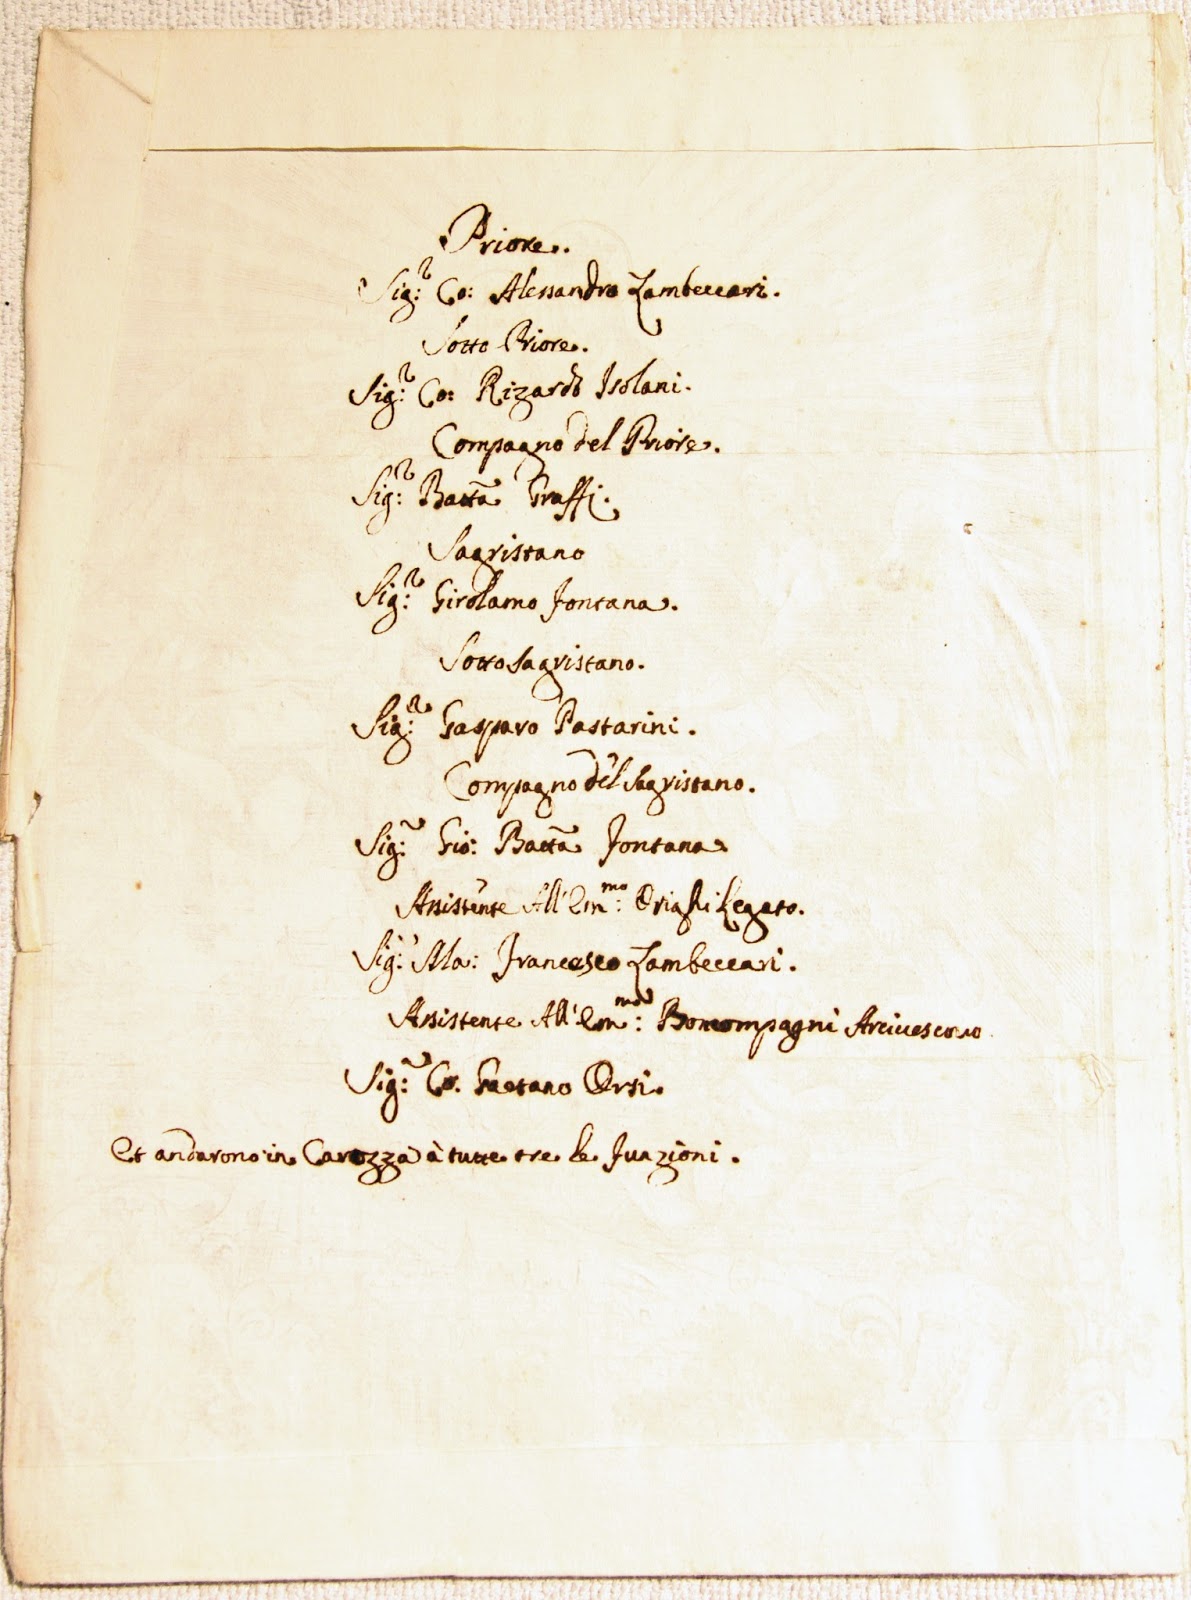 Priore.
Sig.r Co: Alessandro Zambeccari.
Sotto Priore.
Sig.r Co: Rizardo Isolani.
Compagno del Priore.
Sig.r Batta Graffi.
Sagristano
Sig.r Girolamo Fontana.
Sotto Sagristano.
Sig.r Gasparo Pastarini.
Compagno del Sagristano.
Sig.r Gio: Batta Fontana
Assistente All'Em.mo: Legato.
Sig.r Ma: Francesco Zambeccari.
Assistente All'Em.mo: Boncompagni Arciuescouo
Sig.r Co. Gaetano Orsi.
Et andarono in Carozza à tutte tre le Funzioni.